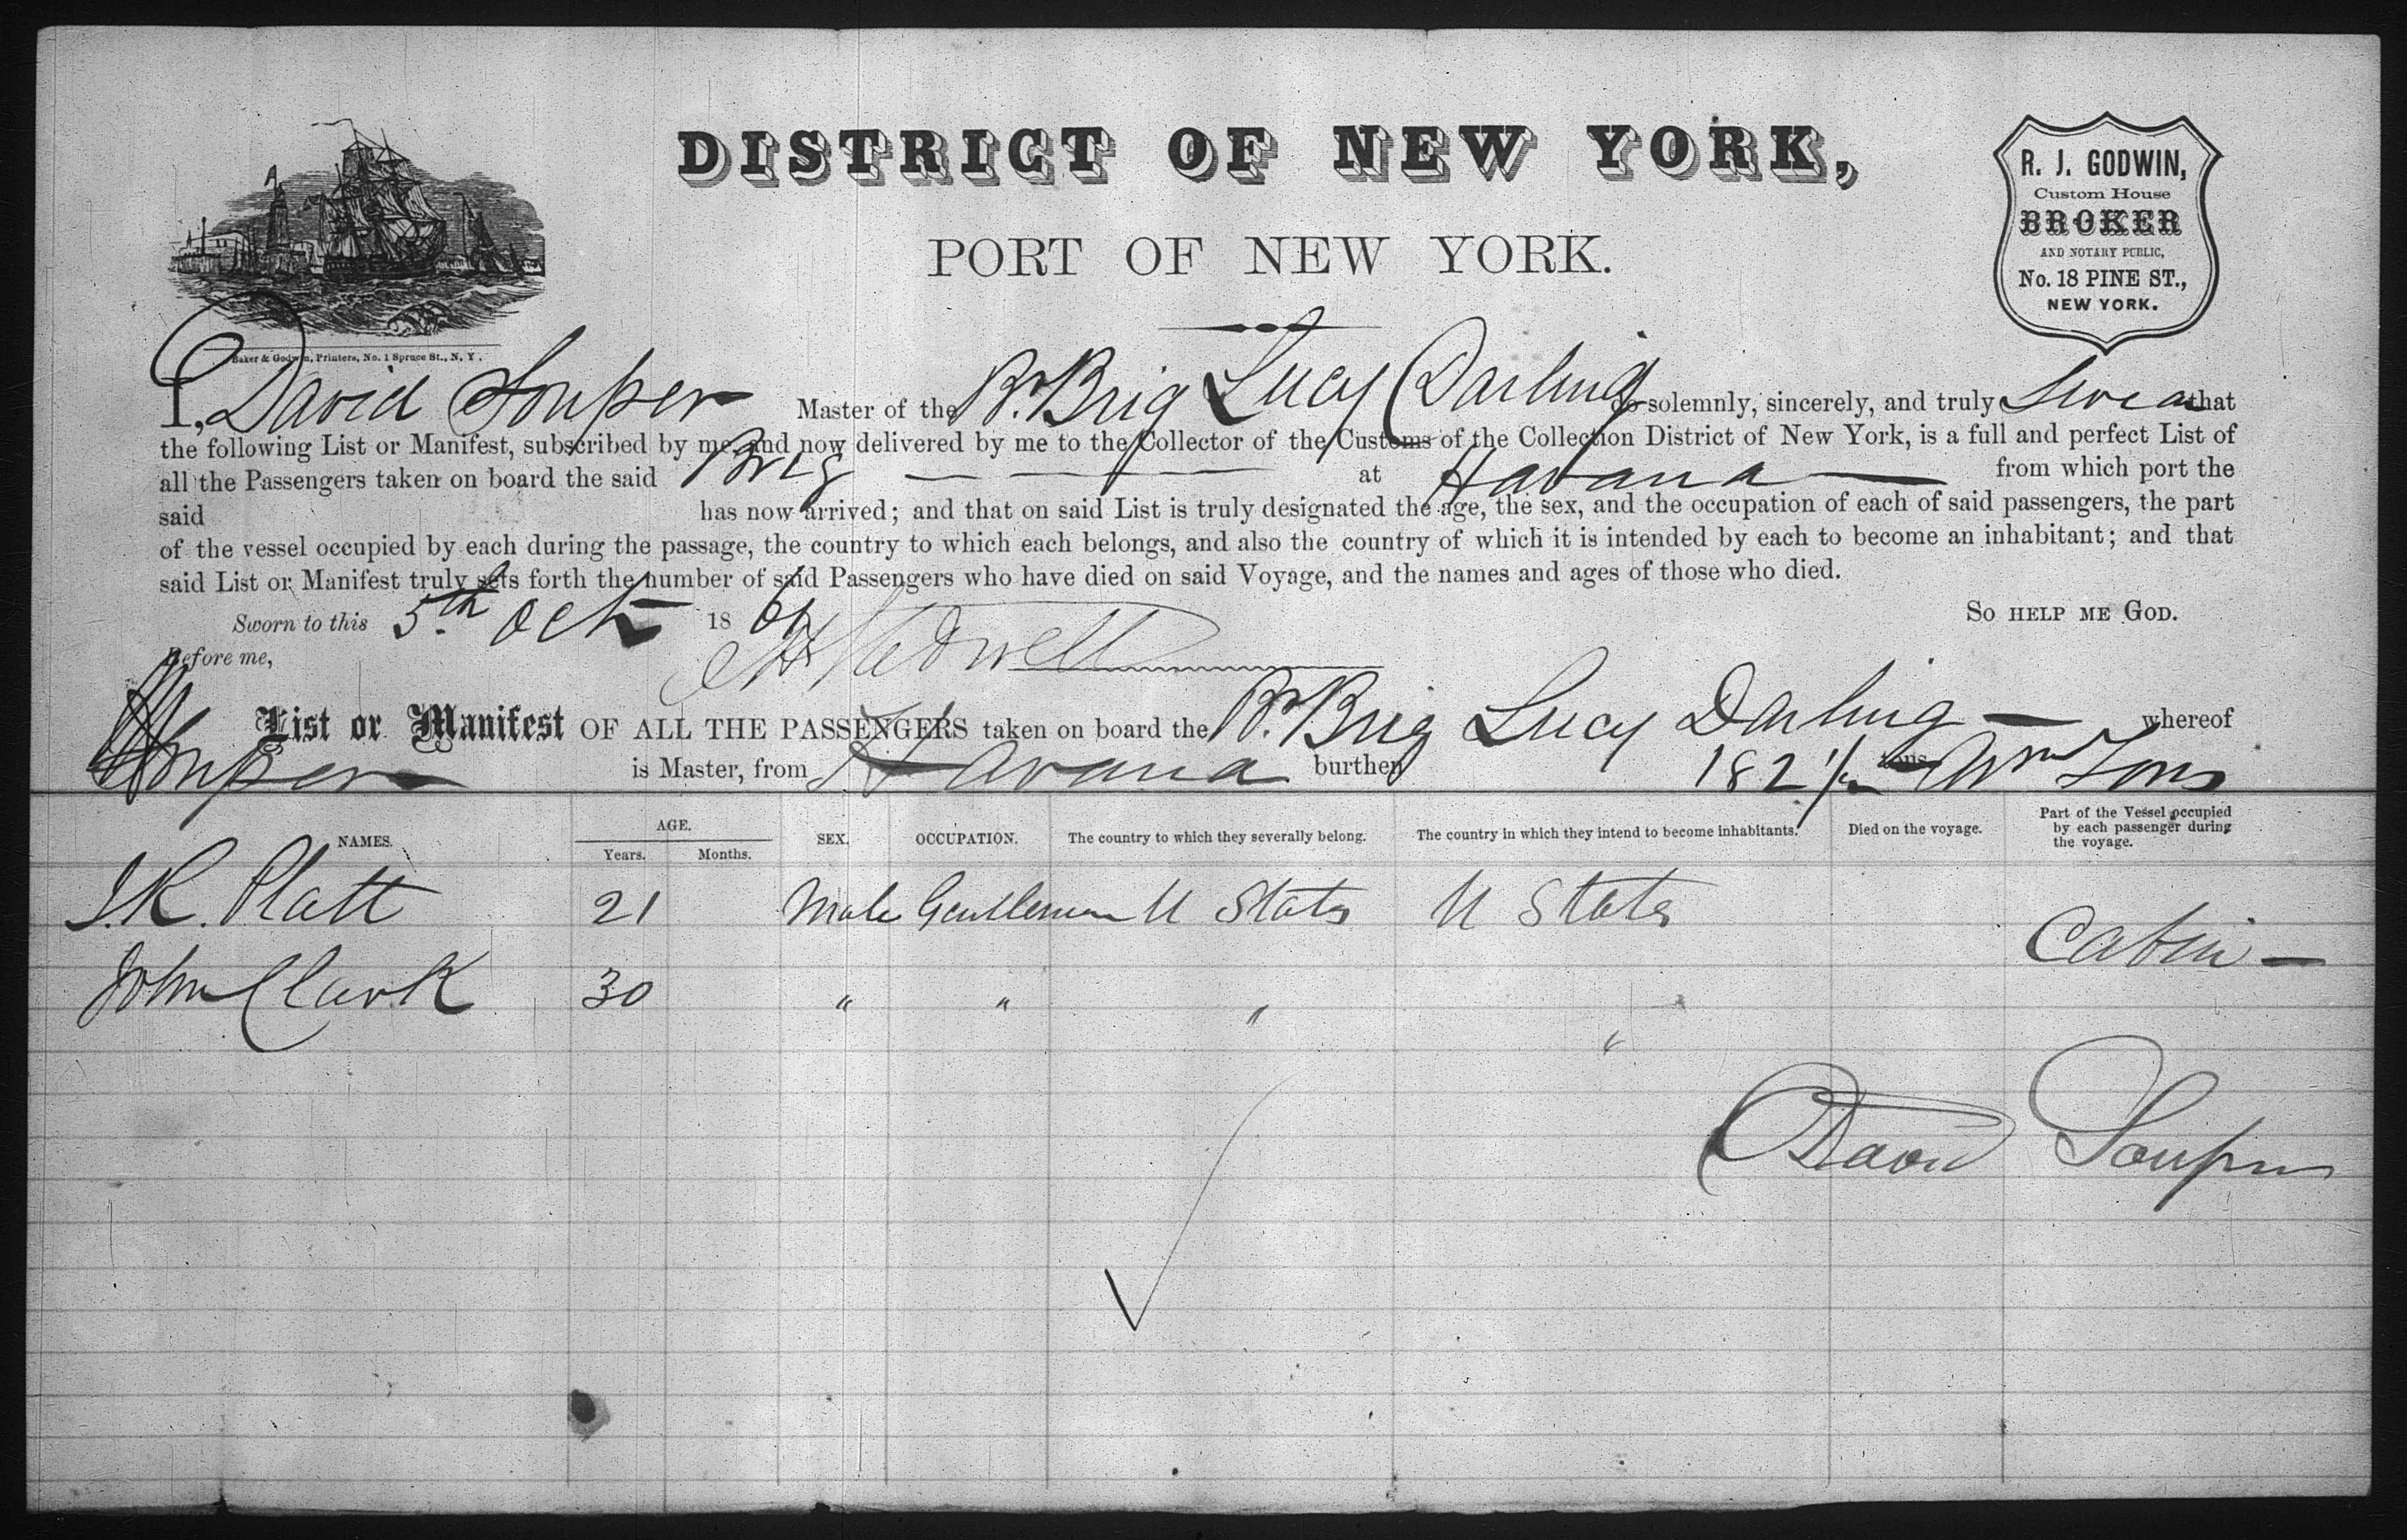 DISTRICT OF NEW YORK,
PORT OF NEW YORK.
R. J. GODWIN,
Custom House
BROKER
AND NOTARY PUBLIC,
No. 18 PINE ST.,
NEW YORK.
Baker & Godwin, Printers, No. 1 Spruce St., N. Y.
I, David Souper Master of the Br. Brig Lucy Darling do solemnly, sincerely, and truly swear that
the following List or Manifest, subscribed by me and now delivered by me to the Collector of the Customs of the Collection District of New York, is a full and perfect List of
all the Passengers taken on board the said Brig at Havana from which port the
said has now arrived; and that on said List is truly designated the age, the sex, and the occupation of each of said passengers, the part
of the vessel occupied by each during the passage, the country to which each belongs, and also the country of which it is intended by each to become an inhabitant; and that
said List or Manifest truly sets forth the number of said Passengers who have died on said Voyage, and the names and ages of those who died.
Sworn to this 5th Oct 1861 SO HELP ME GOD.
Before me,
List or Manifest OF ALL THE PASSENGERS taken on board the Br. Brig Lucy Darling whereof
Souper is Master, from Havana burthen 182 tons Tons
NAMES. AGE. Years. Months. SEX. OCCUPATION. The country to which they severally belong. The country in which they intend to become inhabitants. Died on the voyage. Part of the Vessel occupied by each passenger during the voyage.
J.R. Platt 21 Male Gentleman U States U States Cabin
John Clark 30 " " " "
David Souper